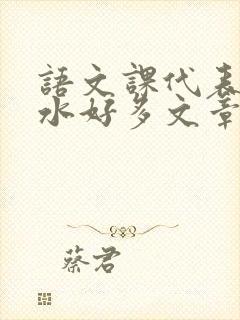 語文課代表
水好多文章
蔡君